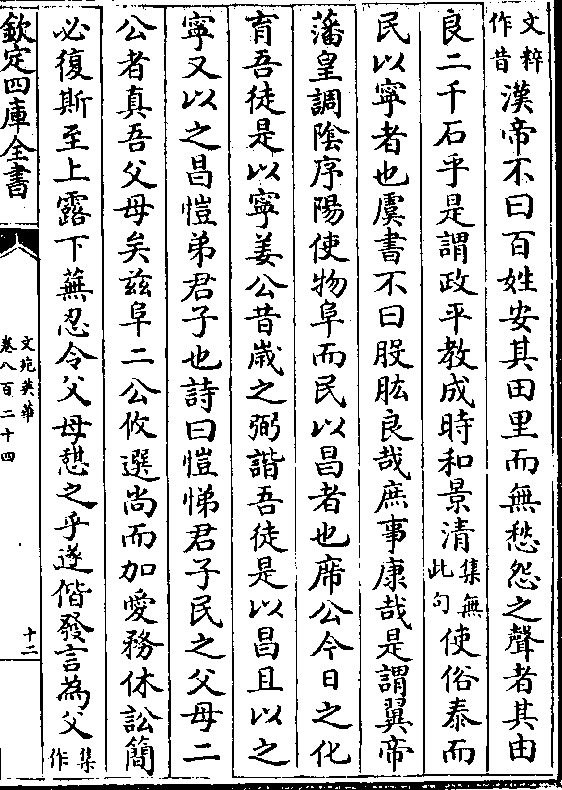 文粹作昔漢帝不曰百姓安其田里而無愁怨之聲者其由
良二千石乎是謂政平教成時和景清集無此句使俗泰而
民以寧者也虞書不曰股肱良哉庶事康哉是謂翼帝
藩皇調陰序陽使物阜而民以昌者也席公今日之化
育吾徒是以寧姜公昔歲之弼諧吾徒是以昌且以之
寧又以之昌愷弟君子也詩曰愷悌君子民之父母二
公者真吾父母矣茲阜二公攸選尚而加愛務休訟簡
必復斯至上露下蕪忍令父母憇之乎遂偕發言為父集作
欽定四庫全書
文苑英華
卷八百二十四
十二